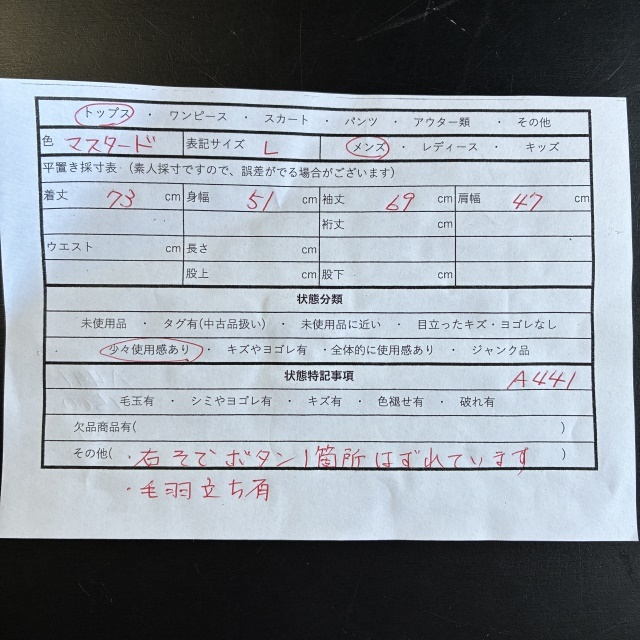 トップス ・ ワンピース ・ スカート ・ パンツ ・ アウター類 ・ その他
色 マスタード 表記サイズ L メンズ ・ レディース ・ キッズ
平置き採寸表（素人採寸ですので、誤差がでる場合がございます）
着丈 73 cm 身幅 51 cm 袖丈 69 cm 肩幅 47 cm
裄丈 cm
ウエスト cm 長さ cm
股上 cm 股下 cm
状態分類
未使用品 ・ タグ有(中古品扱い) ・ 未使用品に近い ・ 目立ったキズ・ヨゴレなし
・ 少々使用感あり ・ キズやヨゴレ有 ・全体的に使用感あり ・ ジャンク品
状態特記事項 A441
毛玉有 ・ シミやヨゴレ有 ・ キズ有 ・ 色褪せ有 ・ 破れ有
欠品商品有( )
その他( ・右そでボタン1箇所はずれています )
・毛羽立ち有